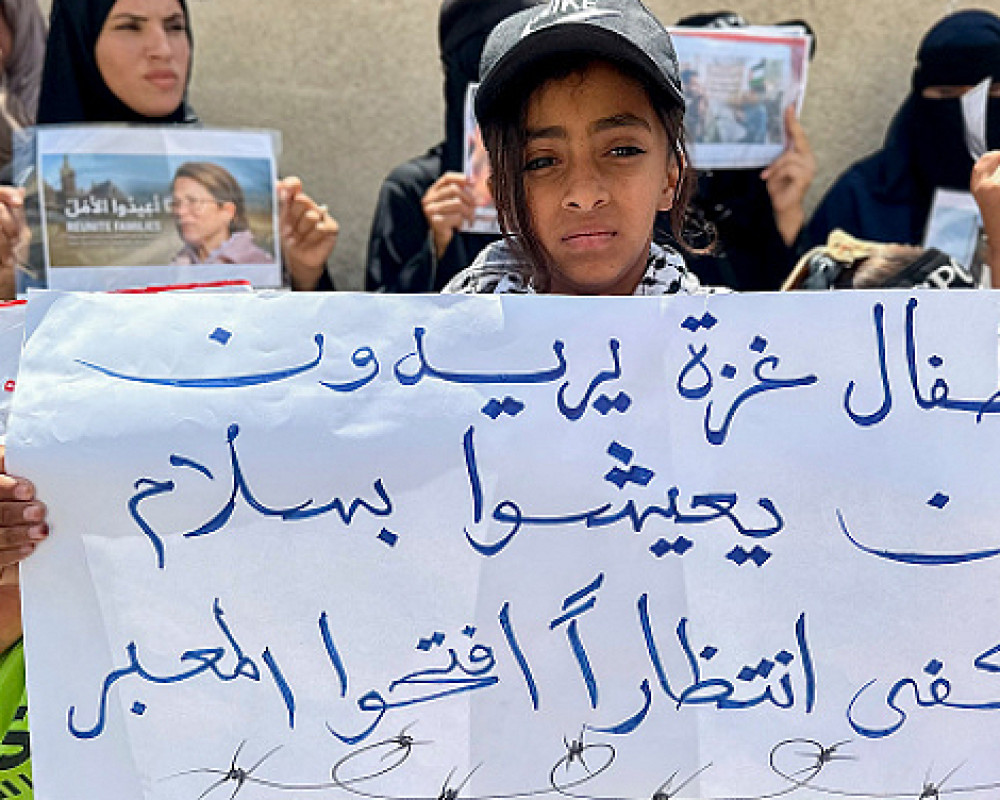 NIKE
أعيدوا الأمل
REUNITE FAMILIES
طفال غزة يريدون
ن يعيشوا بسلام
كفى انتظاراً افتحوا المعبر